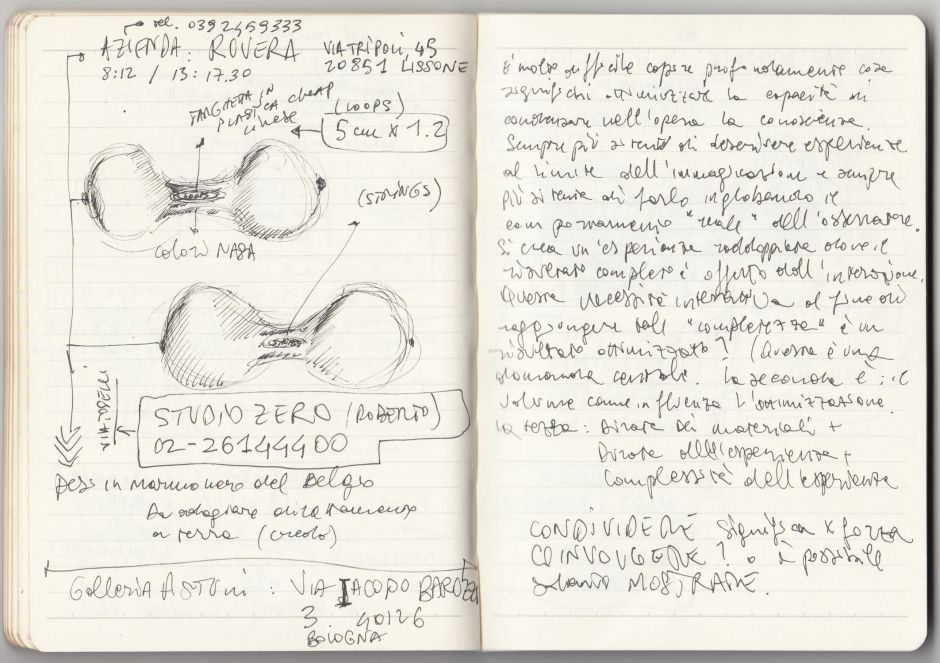 tel. 0392459333
AZIENDA: ROVERA
8:12 / 13:17.30
VIA TRIPOLI, 45
20851 LISSONE
TARGHETTA IN
PLASTICA cheap
cinese
(LOOPS)
5 cm x 1.2
(STRINGS)
COLORI NASA
VIA TADELLI
STUDIO ZERO (ROBERTO)
02-26144400
Pess in marmo nero del Belgio
Da adagiare direttamente
a terra (credo)
Galleria ASTUNI: VIA IACOPO BAROZZI
3. 40126
BOLOGNA
È molto difficile capire profondamente cosa
significhi ottimizzare la capacità di
condensare nell'opera la conoscenza.
Sempre più sento di descrivere esperienze
al limite dell'immaginazione e sempre
più sitenta di farlo inglobando il
comportamento "reale" dell'osservatore.
Si crea un'esperienza raddoppiata dove il
risultato completo è offerto dall'interazione.
Questa necessità interattiva al fine di
raggiungere tale "completezza" è un
risultato ottimizzato? (Questa è una
domanda centrale. La seconda è: il
volume come influenza l'ottimizzazione.
La terza: Durata dei materiali +
Durata dell'esperienza +
Complessità dell'esperienza
CONDIVIDERE significa x forza
COINVOLGERE? o è possibile
soltanto MOSTRARE.